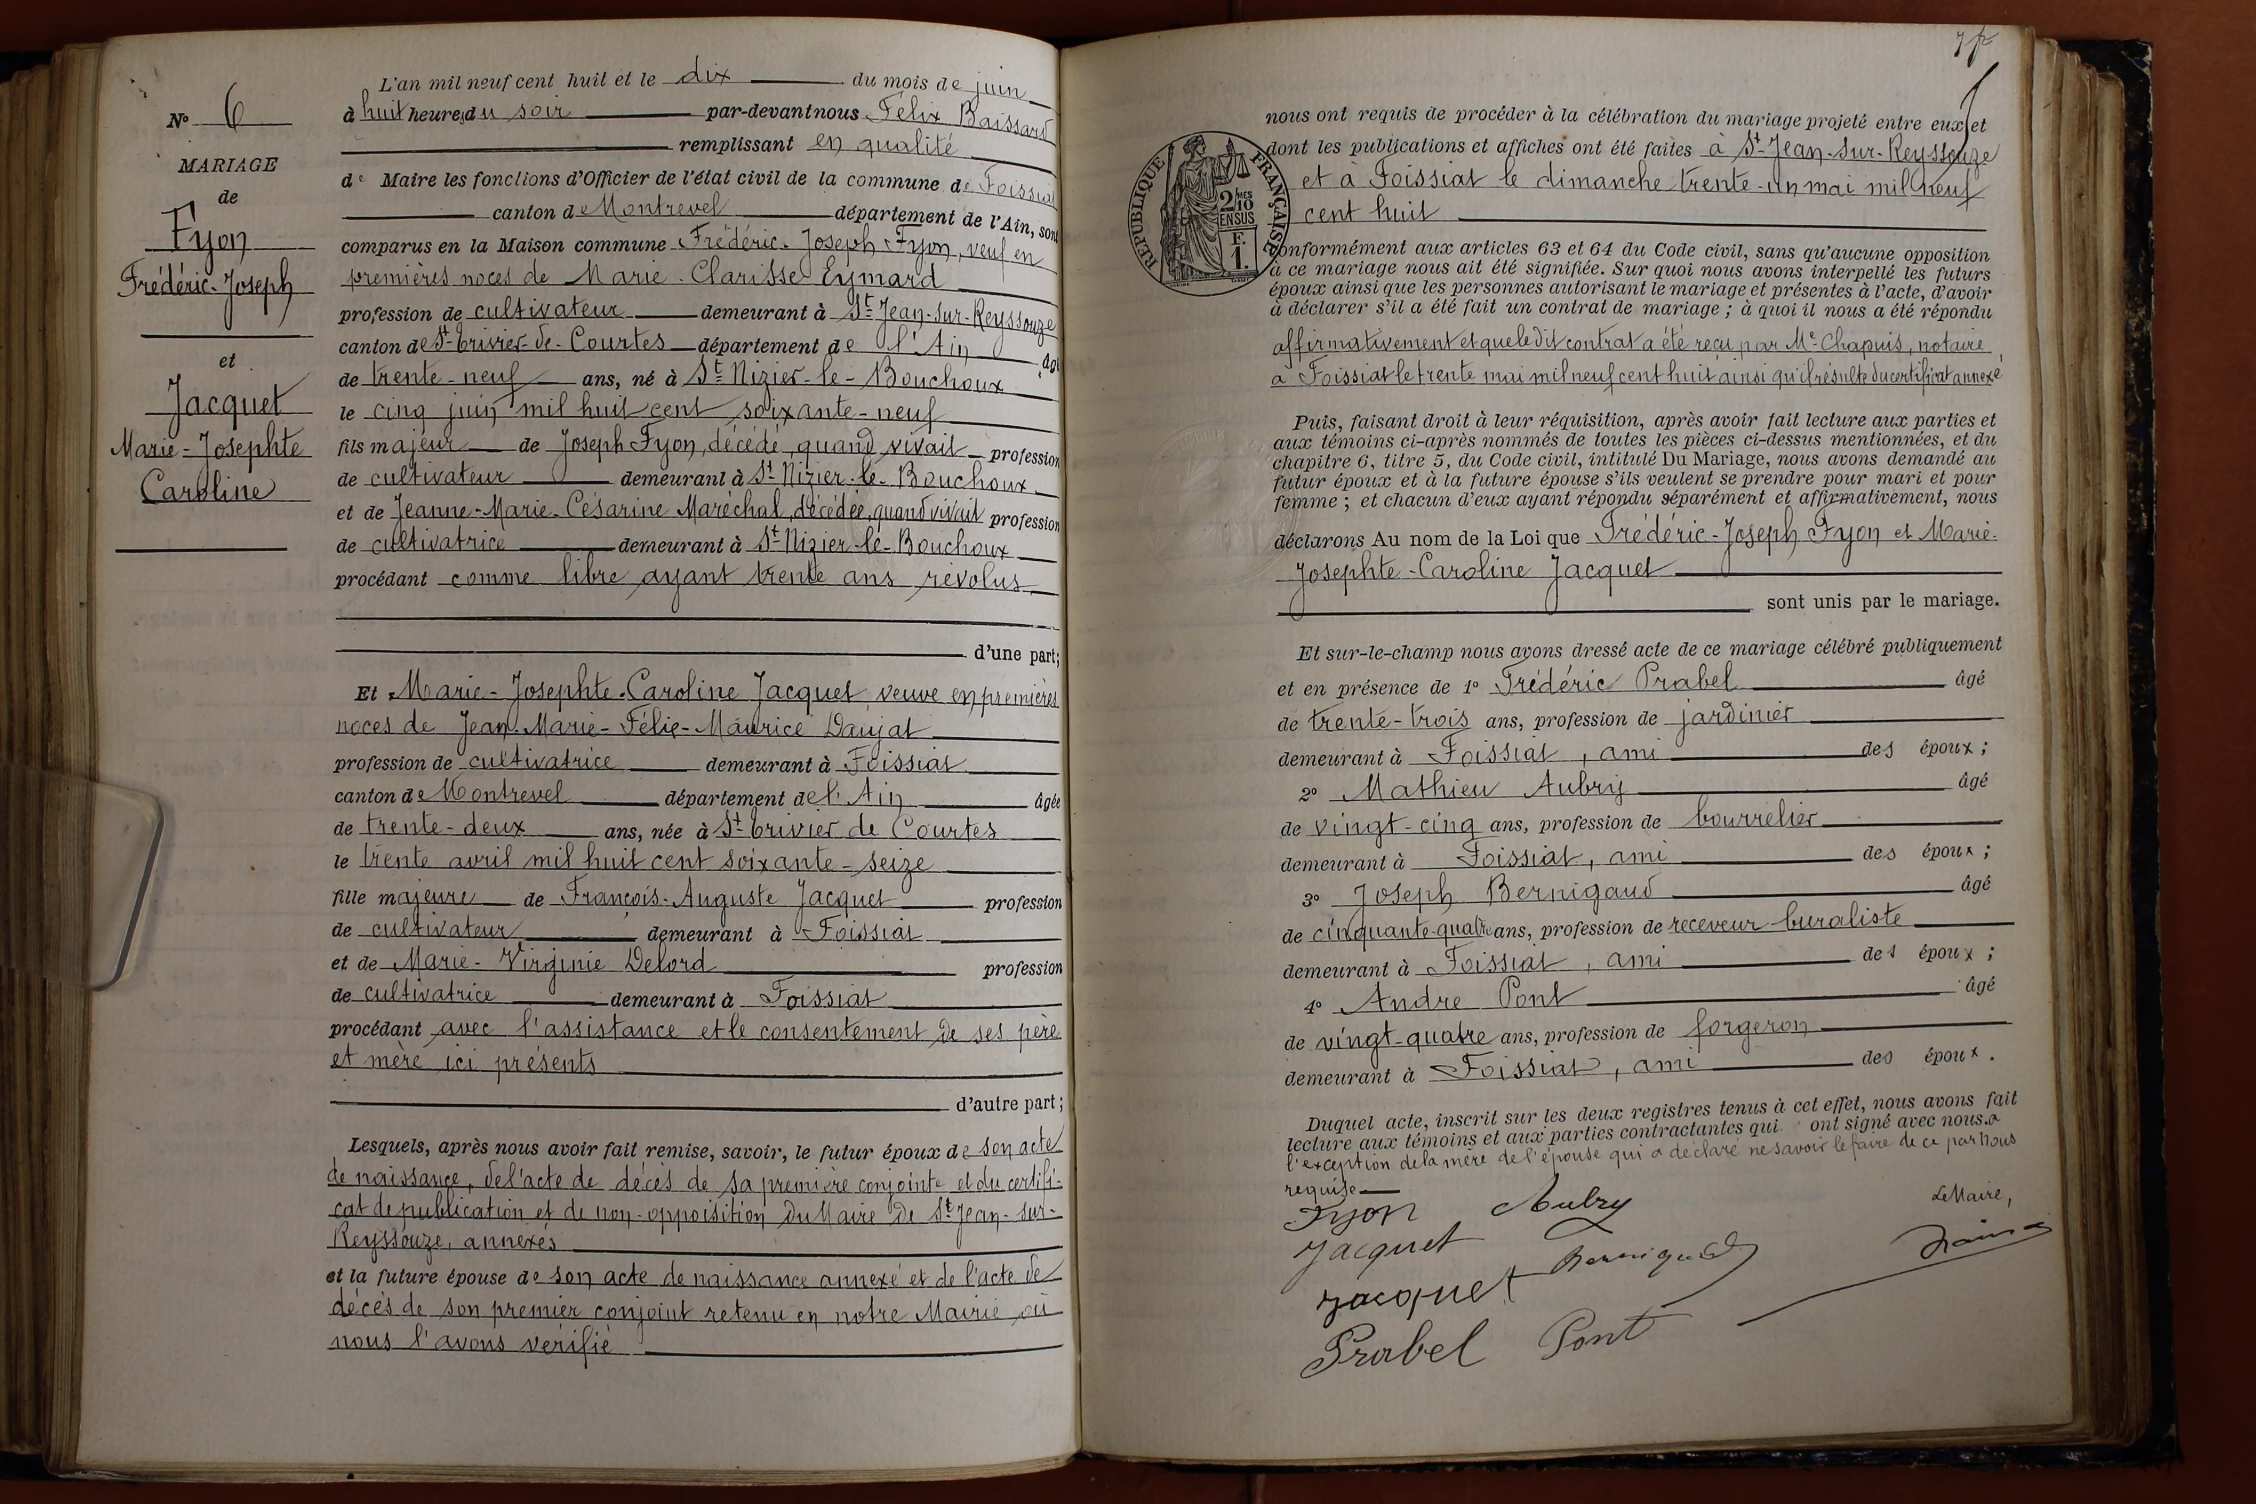 N° 6
MARIAGE
de
Fyon
Frédéric-Joseph
et
Jacquet
Marie-Josephte
Caroline
L'an mil neuf cent huit et le dix du mois de juin
à huit heures du soir par-devant nous Félix Baissard
remplissant en qualité
de Maire les fonctions d'Officier de l'état civil de la commune de Foissiat
canton de Montrevel département de l'Ain, sont
comparus en la Maison commune Frédéric-Joseph Fyon, veuf en
premières noces de Marie-Clarisse Eymard
profession de cultivateur demeurant à St-Jean-sur-Reyssouze
canton de St-Trivier-de-Courtes département de l'Ain âgé
de trente-neuf ans, né à St-Nizier-le-Bouchoux
le cinq juin mil huit cent soixante-neuf
fils majeur de Joseph Fyon, décédé, quand vivait profession
de cultivateur demeurant à St-Nizier-le-Bouchoux
et de Jeanne-Marie-Césarine Maréchal, décédée, quand vivait profession
de cultivatrice demeurant à St-Nizier-le-Bouchoux
procédant comme libre ayant trente ans révolus
d'une part;
Et Marie-Josephte-Caroline Jacquet, veuve en premières
noces de Jean-Marie-Félix-Maurice Daujat
profession de cultivatrice demeurant à Foissiat
canton de Montrevel département de l'Ain âgée
de trente-deux ans, née à St-Trivier de Courtes
le trente avril mil huit cent soixante-seize
fille majeure de François-Auguste Jacquet profession
de cultivateur demeurant à Foissiat
et de Marie-Virginie Delord profession
de cultivatrice demeurant à Foissiat
procédant avec l'assistance et le consentement de ses père
et mère ici présents
d'autre part;
Lesquels, après nous avoir fait remise, savoir, le futur époux de son acte
de naissance, de l'acte de décès de sa première conjointe et du certifi-
cat de publication et de non-opposition du Maire de St-Jean-sur-
Reyssouze, annexés
et la future épouse de son acte de naissance annexé et de l'acte de
décès de son premier conjoint retenu en notre Mairie où
nous l'avons vérifié
nous ont requis de procéder à la célébration du mariage projeté entre eux et
dont les publications et affiches ont été faites à St-Jean-sur-Reyssouze
et à Foissiat le dimanche trente-un mai mil neuf
cent huit
RÉPUBLIQUE FRANÇAISE
2/10 EN SUS
F. 1.
conformément aux articles 63 et 64 du Code civil, sans qu'aucune opposition
à ce mariage nous ait été signifiée. Sur quoi nous avons interpellé les futurs
époux ainsi que les personnes autorisant le mariage et présentes à l'acte, d'avoir
à déclarer s'il a été fait un contrat de mariage; à quoi il nous a été répondu
affirmativement et que le dit contrat a été reçu par Me Chapuis, notaire
à Foissiat le trente mai mil neuf cent huit ainsi qu'il résulte du certificat annexé
Puis, faisant droit à leur réquisition, après avoir fait lecture aux parties et
aux témoins ci-après nommés de toutes les pièces ci-dessus mentionnées, et du
chapitre 6, titre 5, du Code civil, intitulé Du Mariage, nous avons demandé au
futur époux et à la future épouse s'ils veulent se prendre pour mari et pour
femme; et chacun d'eux ayant répondu séparément et affirmativement, nous
déclarons Au nom de la Loi que Frédéric-Joseph Fyon et Marie-
Josephte-Caroline Jacquet
sont unis par le mariage.
Et sur-le-champ nous avons dressé acte de ce mariage célébré publiquement
et en présence de 1° Frédéric Prabel âgé
de trente-trois ans, profession de jardinier
demeurant à Foissiat, ami des époux;
2° Mathieu Aubry âgé
de vingt-cinq ans, profession de bourrelier
demeurant à Foissiat, ami des époux;
3° Joseph Bernigaud âgé
de cinquante-quatre ans, profession de receveur-buraliste
demeurant à Foissiat, ami des époux;
4° Andre Pont âgé
de vingt-quatre ans, profession de forgeron
demeurant à Foissiat, ami des époux.
Duquel acte, inscrit sur les deux registres tenus à cet effet, nous avons fait
lecture aux témoins et aux parties contractantes qui ont signé avec nous à
l'exception de la mère de l'épouse qui a déclaré ne savoir le faire de ce par nous
requise
Le Maire,
Fyon Aubry
Jacquet Bernigaud
Jacquet
Prabel Pont